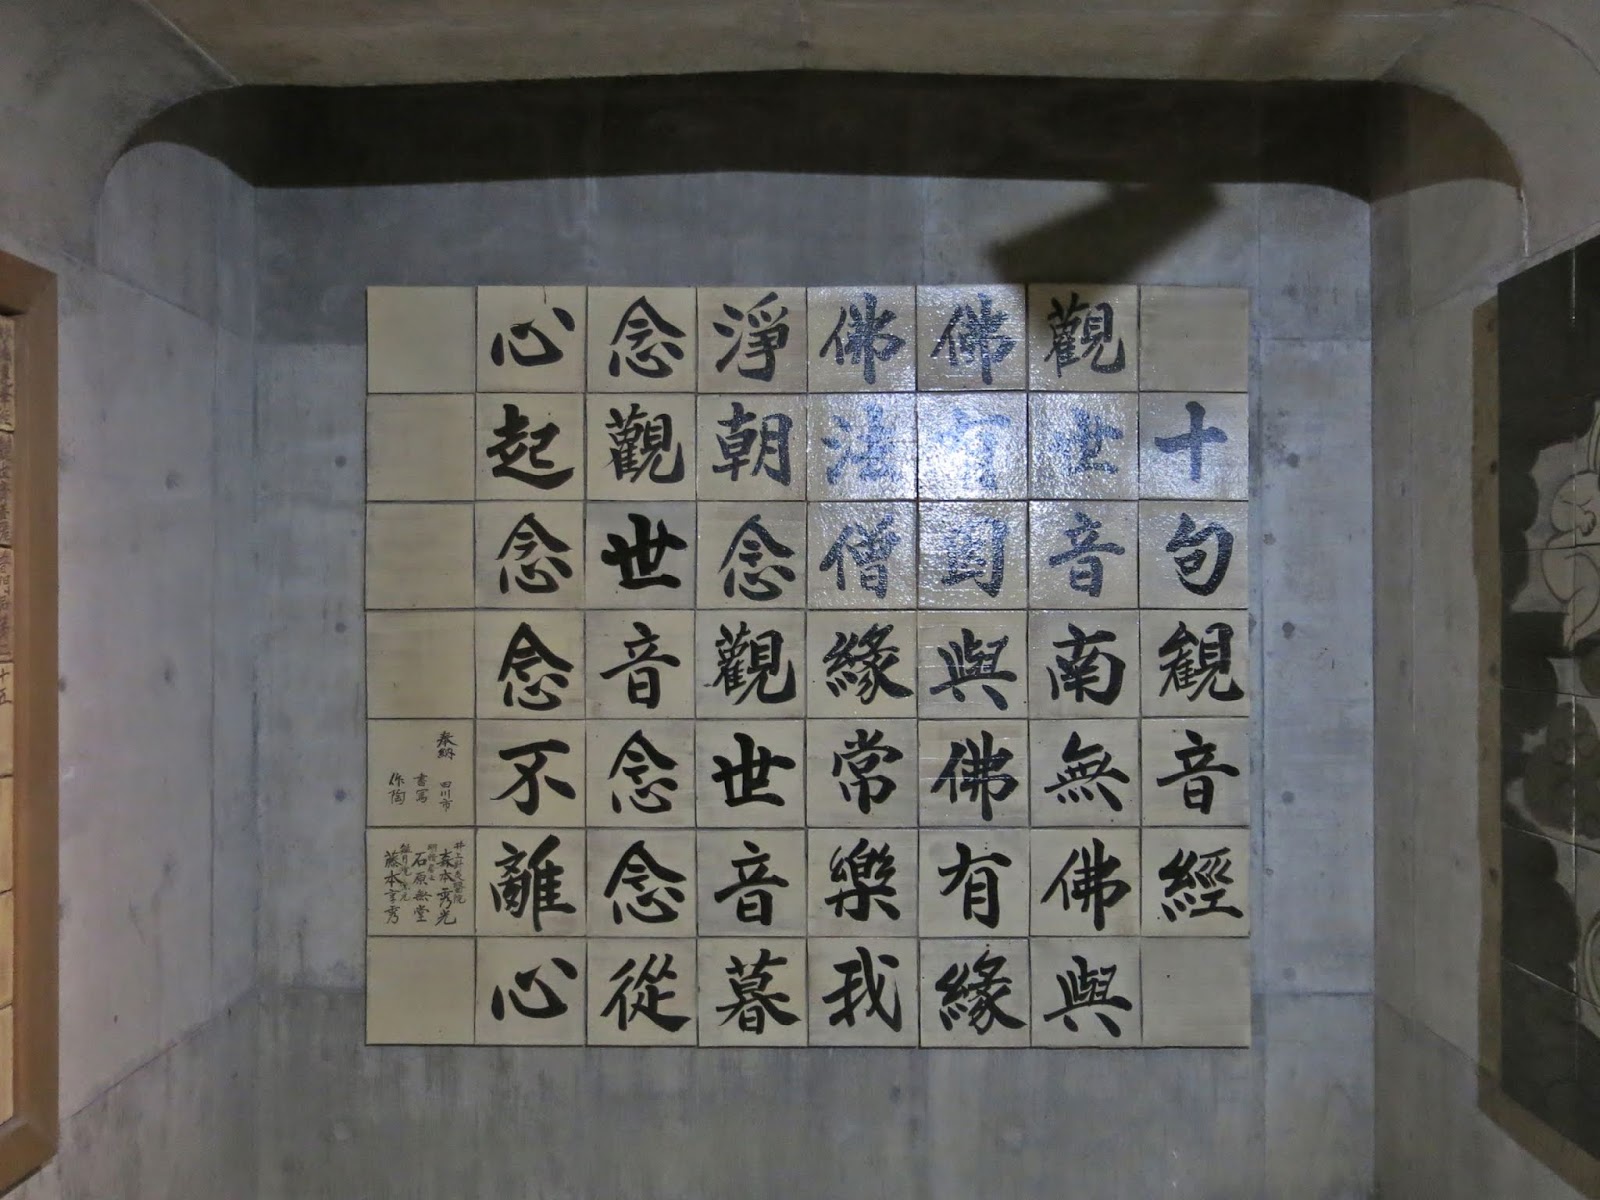 十句観音經
觀世音南無佛與
佛有因與佛有緣
佛法僧緣常樂我
淨朝念觀世音暮
念觀世音念念從
心起念念不離心
奉納 田川市 森本秀光
書写 石原無堂
作陶 藤本幸秀